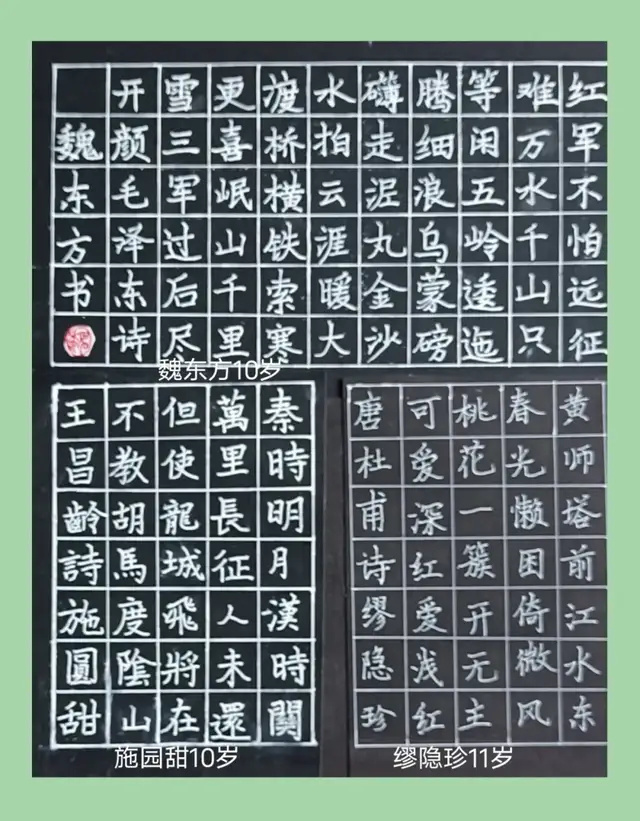 红军不怕远征
难万水千山只
等闲五岭逶迤
腾细浪乌蒙磅
礴走泥丸金沙
水拍云涯暖大
渡桥横铁索寒
更喜岷山千里
雪三军过后尽
开颜毛泽东诗
魏东方书
魏东方10岁
秦時明月漢時關
萬里長征人未還
但使龍城飛將在
不教胡馬度陰山
王昌齡詩施圓甜
施园甜10岁
黄师塔前江水东
春光懒困倚微风
桃花一簇开无主
可爱深红爱浅红
唐杜甫诗缪隐珍
缪隐珍11岁